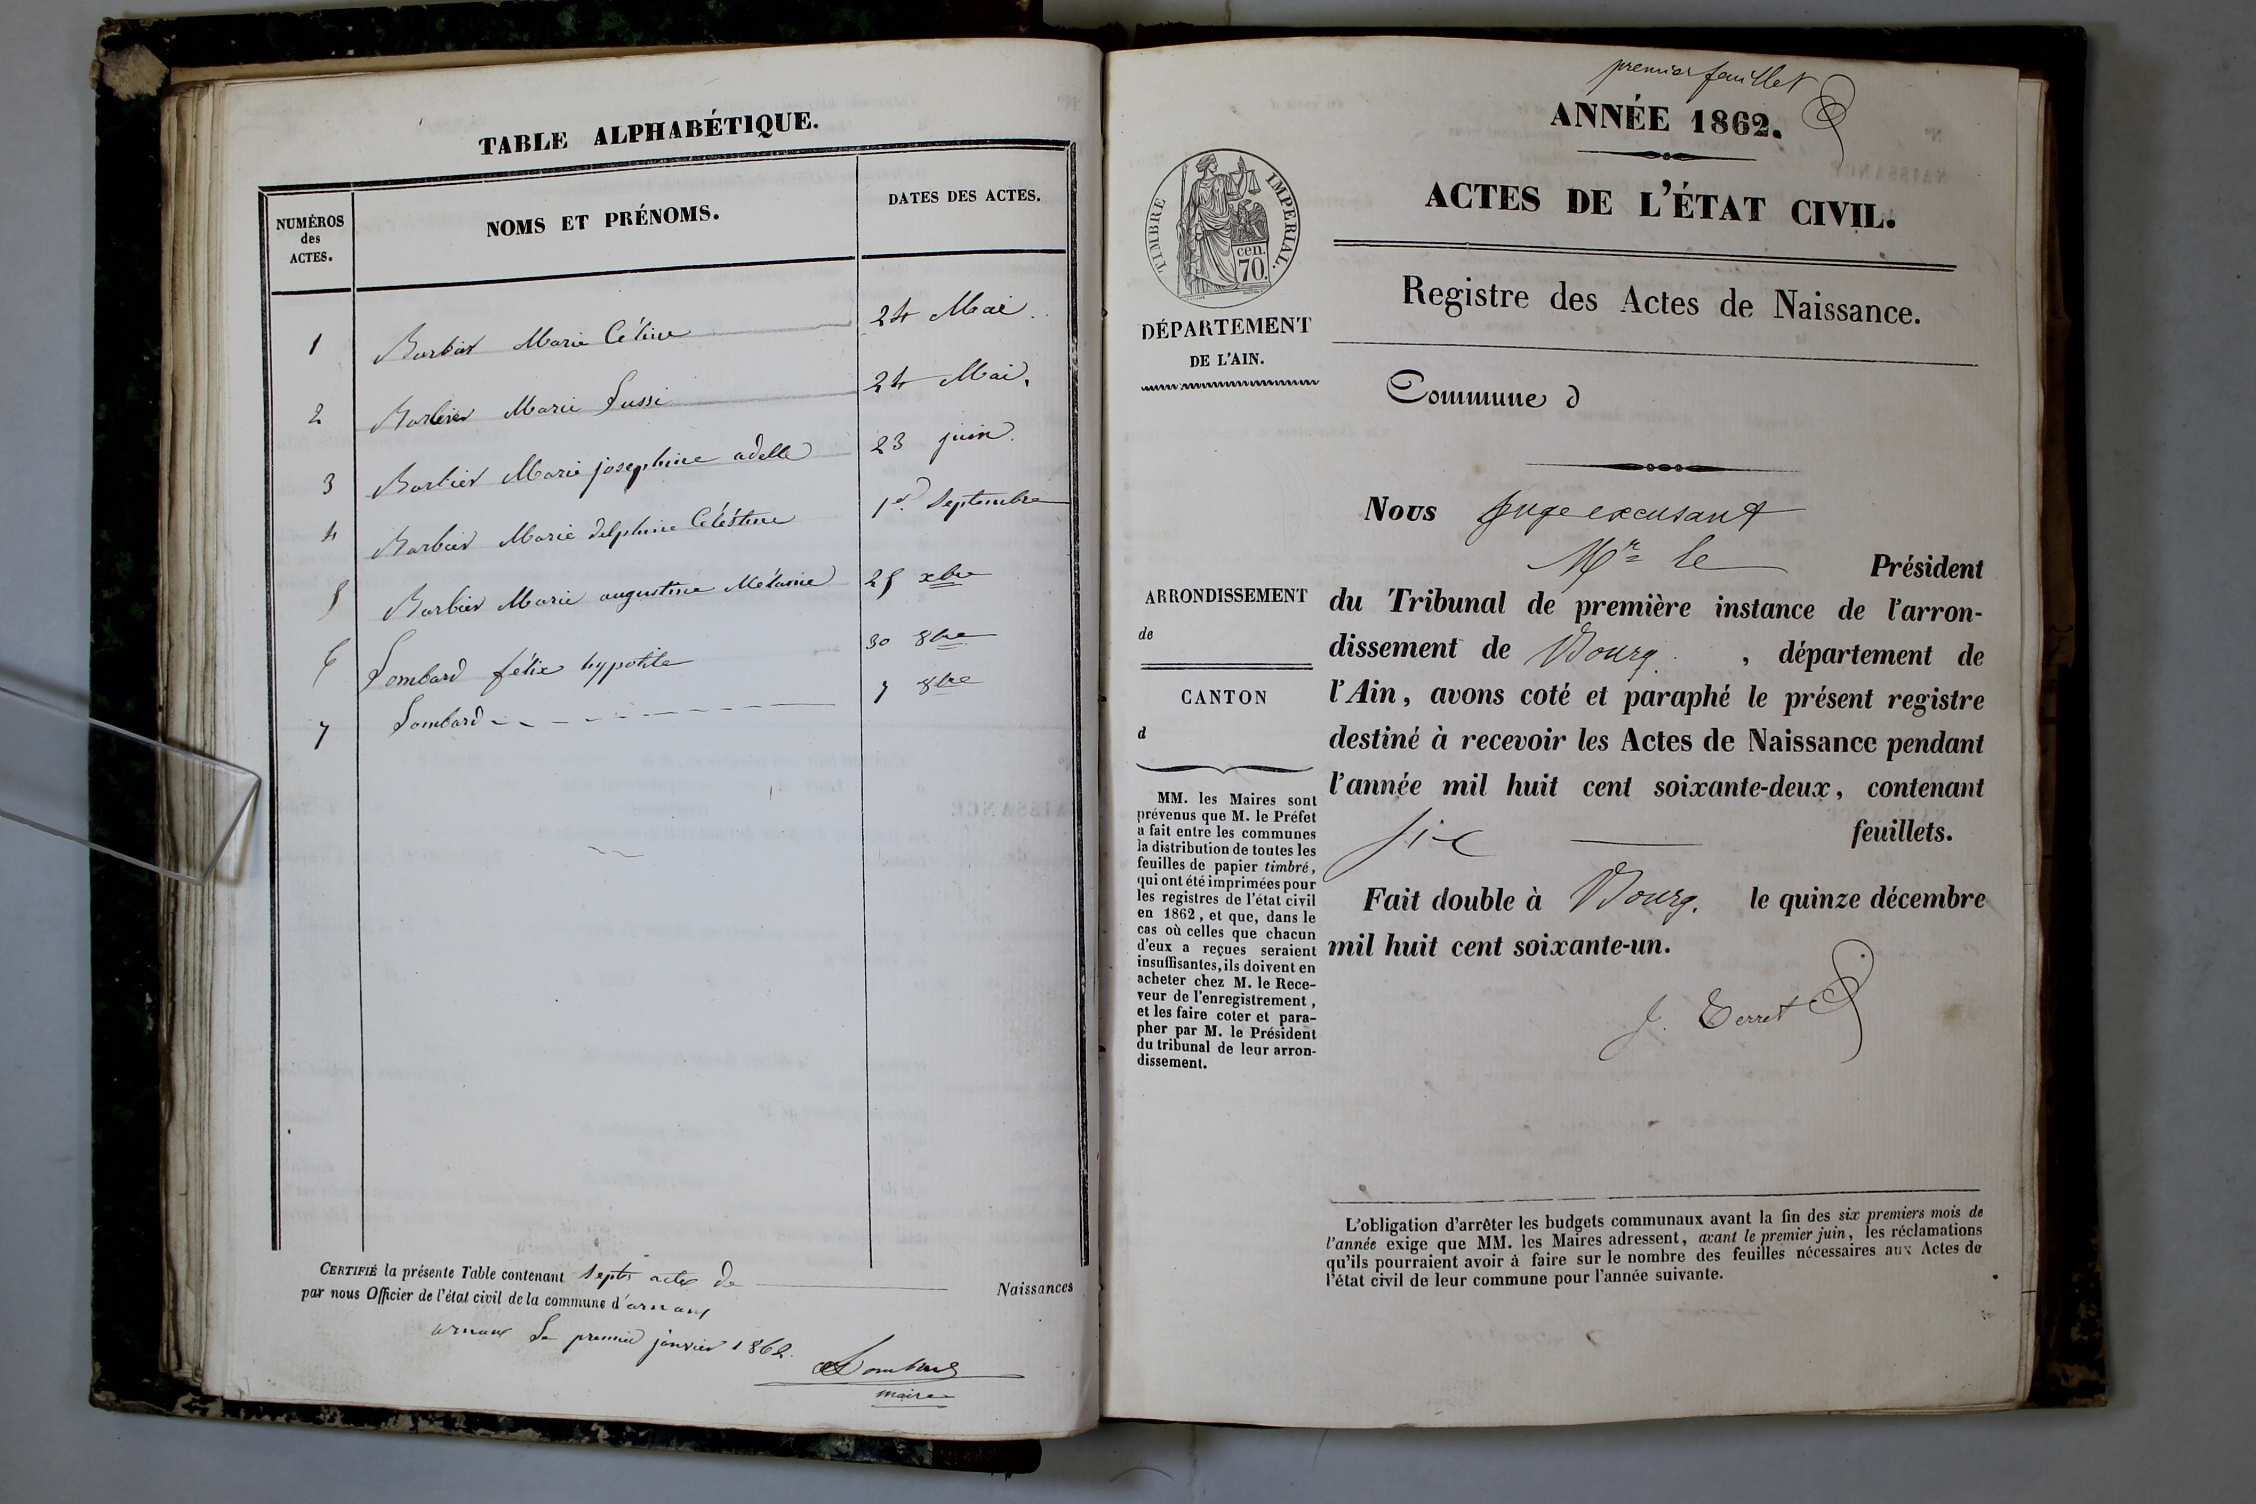 TABLE ALPHABÉTIQUE.
NUMÉROS
des
ACTES.
NOMS ET PRÉNOMS.
DATES DES ACTES.
1 Barbier Marie Céline 24 Mai
2 Barbier Marie Lussi 24 Mai.
3 Barbier Marie josephine adelle 23 juin.
4 Barbier Marie delphine Céléstine 1er. Septembre
5 Barbier Marie augustine Mélanie 25 xbre
6 Lombard félix hypolite 30 8bre
7 Lombard 7 8bre
CERTIFIÉ la présente Table contenant septs actes de Naissances
par nous Officier de l'état civil de la commune d'arnans
arnans Le premier janvier 1862.
Lombard
maire
premier feuillet
ANNÉE 1862.
ACTES DE L'ÉTAT CIVIL.
Registre des Actes de Naissance.
TIMBRE IMPERIAL.
cen.
70.
DÉPARTEMENT
DE L'AIN.
Commune d
Nous Juge excusant
Mr le Président
du Tribunal de première instance de l'arron-
dissement de Bourg. , département de
l'Ain, avons coté et paraphé le présent registre
destiné à recevoir les Actes de Naissance pendant
l'année mil huit cent soixante-deux, contenant
six feuillets.
Fait double à Bourg. le quinze décembre
mil huit cent soixante-un.
J. Terret
ARRONDISSEMENT
de
CANTON
d
MM. les Maires sont
prévenus que M. le Préfet
a fait entre les communes
la distribution de toutes les
feuilles de papier timbré,
qui ont été imprimées pour
les registres de l'état civil
en 1862, et que, dans le
cas où celles que chacun
d'eux a reçues seraient
insuffisantes, ils doivent en
acheter chez M. le Rece-
veur de l'enregistrement,
et les faire coter et para-
pher par M. le Président
du tribunal de leur arron-
dissement.
L'obligation d'arrêter les budgets communaux avant la fin des six premiers mois de
l'année exige que MM. les Maires adressent, avant le premier juin, les réclamations
qu'ils pourraient avoir à faire sur le nombre des feuilles nécessaires aux Actes de
l'état civil de leur commune pour l'année suivante.